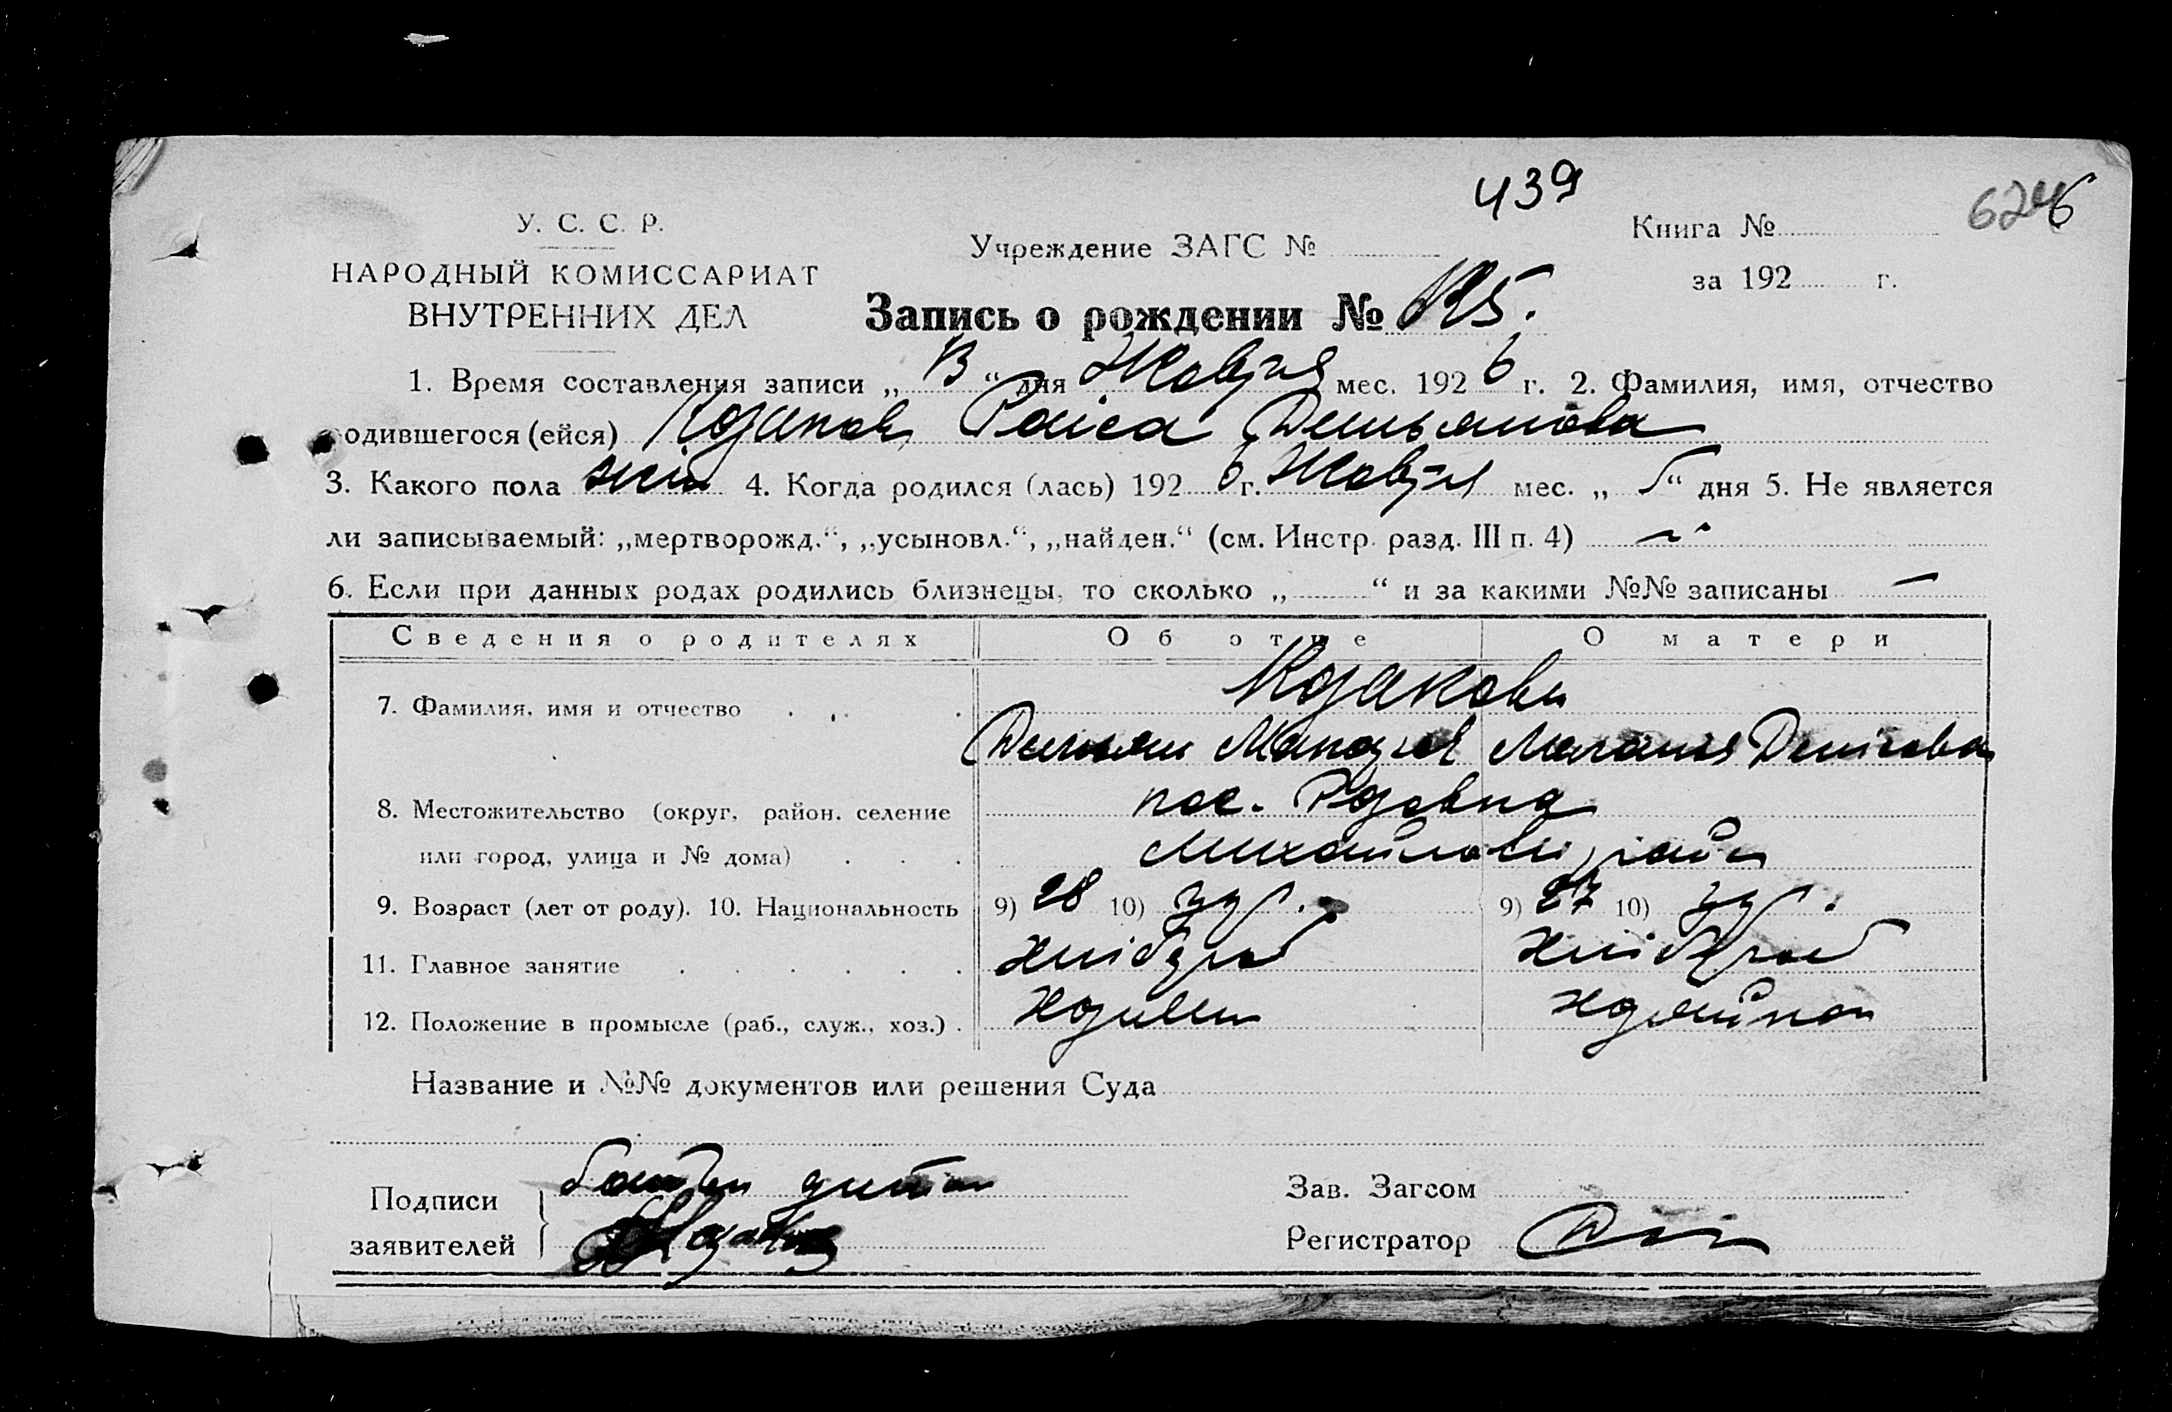 439
6246
У. С. С. Р.
НАРОДНЫЙ КОМИССАРИАТ
ВНУТРЕННИХ ДЕЛ
Учреждение ЗАГС №
Книга №
за 192 г.
Запись о рождении №
1. Время составления записи „ “ дня Жовтня мес. 1926 г. 2. Фамилия, имя, отчество
родившегося (ейся) Козакова Раіса Демьянова
3. Какого пола жін 4. Когда родился (лась) 1926 г. Жовтня мес. „ 5 “ дня 5. Не является
ли записываемый: „мертворожд.“, „усыновл.“, „найден.“ (см. Инстр. разд. III п. 4)
6. Если при данных родах родились близнецы, то сколько „ “ и за какими №№ записаны —
Сведения о родителях Об отце О матери
7. Фамилия, имя и отчество Козакови
Демьян Маланія Денисова
8. Местожительство (округ, район, селение пос.
или город, улица и № дома) Михайлівськ район
9. Возраст (лет от роду). 10. Национальность 9) 28 10) 9) 27 10)
11. Главное занятие хлібороб хлібороб
12. Положение в промысле (раб., служ., хоз.) хозяин хозяйка
Название и №№ документов или решения Суда
Подписи
заявителей
батьки дитини
Козаков
Зав. Загсом
Регистратор